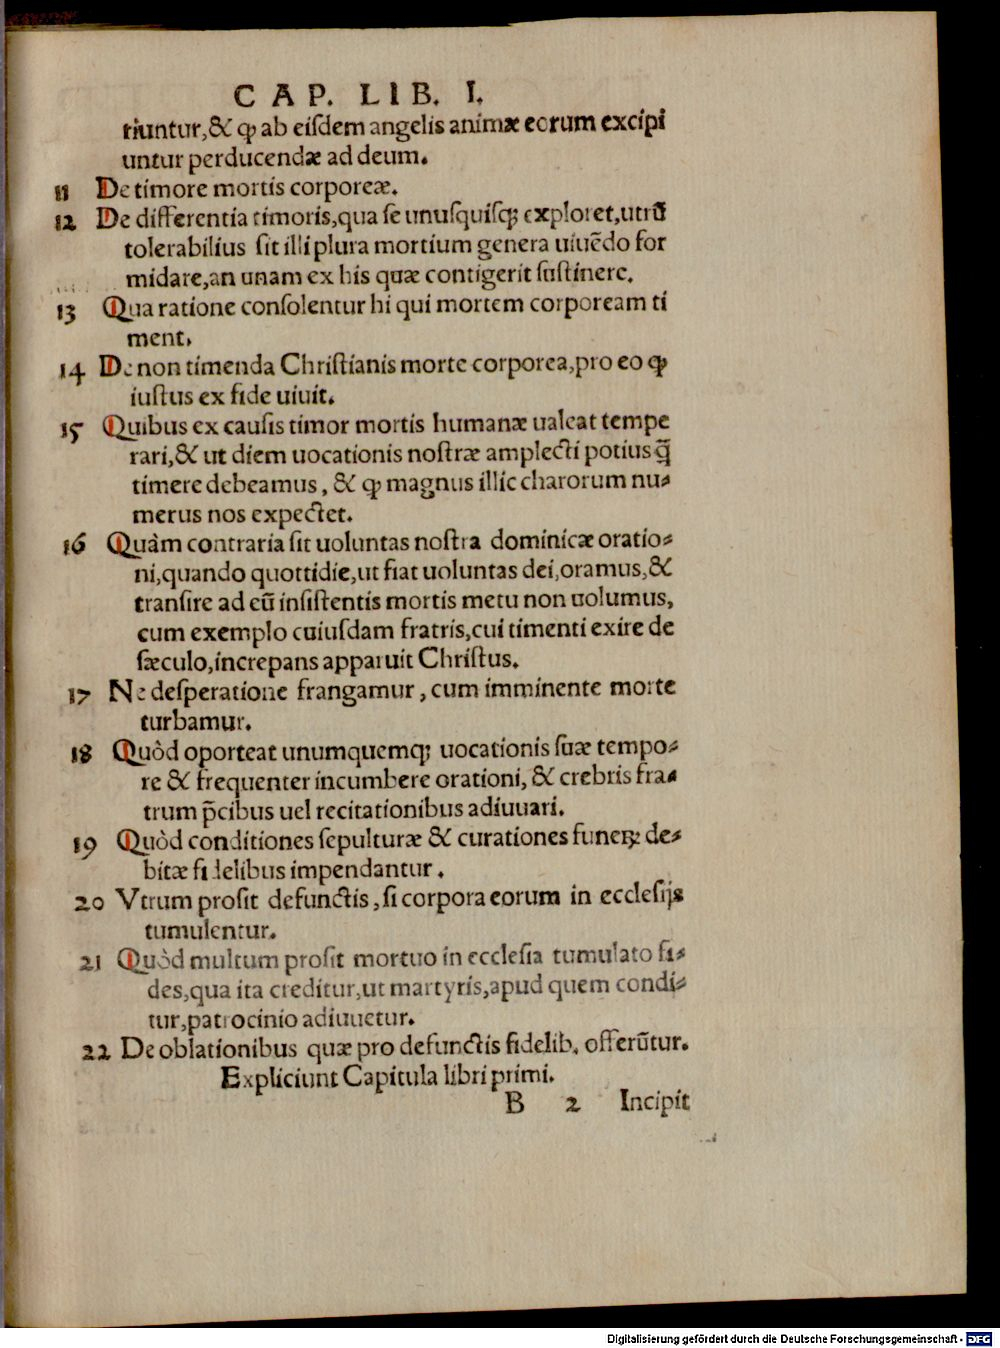 CAP. LIB. I.
riuntur,& ꝙ ab eiſdem angelis animæ eorum excipi
untur perducendæ ad deum.
11 De timore mortis corporeæ.
12 De differentia timoris,qua ſe unuſquiſqꝫ exploret,utrū
tolerabilius ſit illi plura mortium genera uiuēdo for
midare,an unam ex his quæ contigerit ſuſtinere.
13 Qua ratione conſolentur hi qui mortem corpoream ti
ment.
14 De non timenda Chriſtianis morte corporea,pro eo ꝙ
iuſtus ex fide uiuit.
15 Quibus ex cauſis timor mortis humanæ ualeat tempe
rari,& ut diem uocationis noſtræ amplecti potius q̄
timere debeamus, & ꝙ magnus illic charorum nu⸗
merus nos expectet.
16 Quàm contraria ſit uoluntas noſtra dominicæ oratio⸗
ni,quando quottidie,ut fiat uoluntas dei,oramus,&
tranſire ad eū inſiſtentis mortis metu non uolumus,
cum exemplo cuiuſdam fratris,cui timenti exire de
ſæculo,increpans apparuit Chriſtus.
17 Ne deſperatione frangamur, cum imminente morte
turbamur.
18 Quòd oporteat unumquemqꝫ uocationis ſuæ tempo⸗
re & frequenter incumbere orationi, & crebris fra⸗
trum p̄cibus uel recitationibus adiuuari.
19 Quòd conditiones ſepulturæ & curationes funeꝝ de⸗
bitæ fidelibus impendantur.
20 Vtrum proſit defunctis, ſi corpora eorum in eccleſijs
tumulentur.
21 Quòd multum proſit mortuo in eccleſia tumulato fi⸗
des,qua ita creditur,ut martyris,apud quem condi⸗
tur,patrocinio adiuuetur.
22 De oblationibus quæ pro defunctis fidelib. offerūtur.
Expliciunt Capitula libri primi.
B 2 Incipit
Digitalisierung gefördert durch die Deutsche Forschungsgemeinschaft - DFG